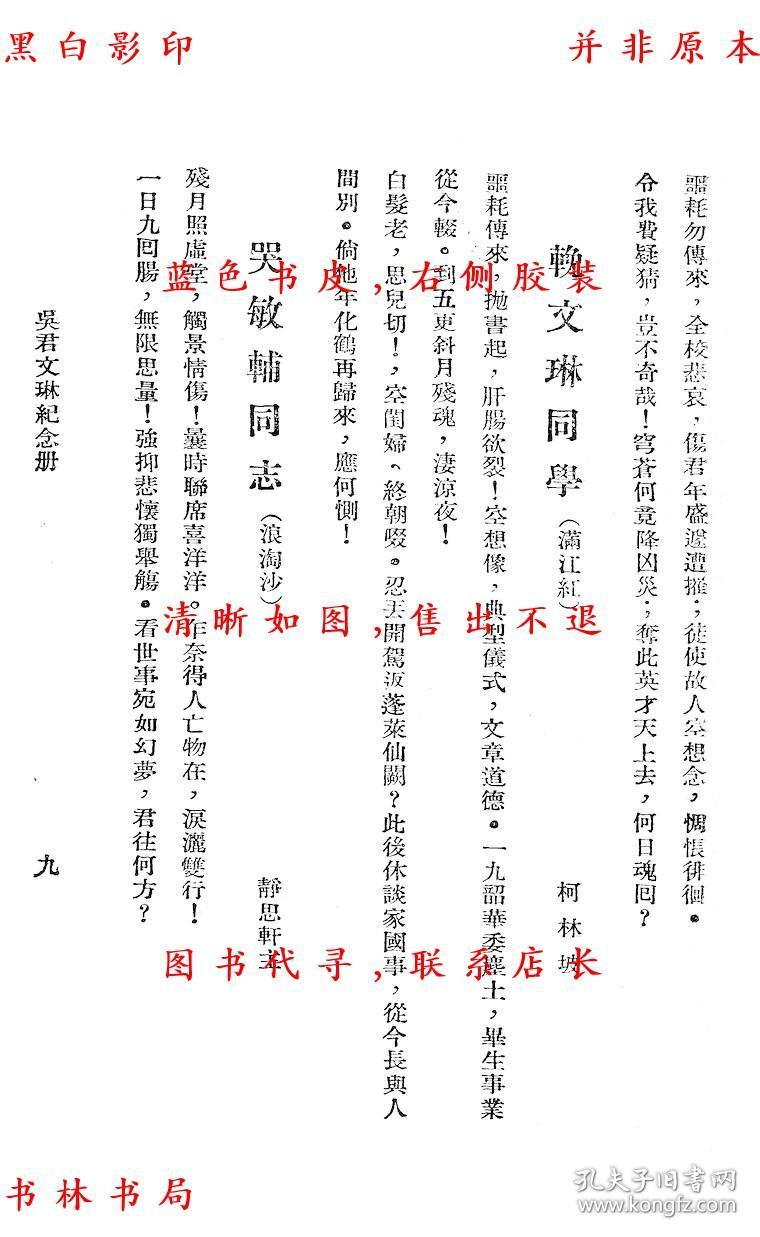 黑白影印
并非原本
噩耗勿傳來，全校悲哀，傷君年盛遽遭摧；徒使故人空想念，惆悵徘徊。
令我費疑猜，豈不奇哉！穹蒼何竟降凶災；奪此英才天上去，何日魂囘？
輓文琳同學（滿江紅）
柯林坡
噩耗傳來，拋書起，肝腸欲裂！空想像，典型儀式，文章道德。一九韶華委塵土，畢生事業
從今輟。到五更斜月殘魂，淒涼夜！
白髮老，思兒切！，空閨婦、終朝啜。忍丟開駕返蓬萊仙闕？此後休談家國事，從今長與人
間別。倘他年化鶴再歸來，應何惻！
哭敏輔同志（浪淘沙）
靜思軒主
殘月照虛堂，觸景情傷！曩時聯席喜洋洋。乍奈得人亡物在，淚灑雙行！
一日九囘腸，無限思量！強抑悲懷獨舉觴。看世事宛如幻夢，君往何方？
吳君文琳紀念册
九
蓝色书皮，右侧胶装
清晰如图，售出不退
图书代寻，联系店长
书林书局
孔夫子旧书网
www.kongfz.com